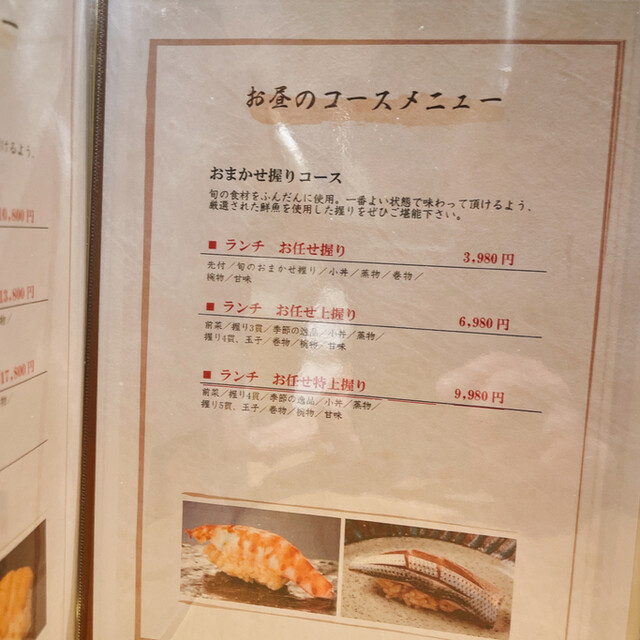 ー
けるよう、
10,800円
13,800円
17,800円
お昼のコースメニュー
おまかせ握りコース
旬の食材をふんだんに使用。一番よい状態で味わって頂けるよう、
厳選された鮮魚を使用した握りをぜひご堪能下さい。
■ ランチ お任せ握り 3,980円
先付／旬のおまかせ握り／小丼／蒸物／巻物／
椀物／甘味
■ ランチ お任せ上握り 6,980円
前菜／握り3貫／季節の逸品／小丼／蒸物／
握り4貫、玉子／巻物／椀物／甘味
■ ランチ お任せ特上握り 9,980円
前菜／握り4貫／季節の逸品／小丼／蒸物／
握り5貫、玉子／巻物／椀物／甘味